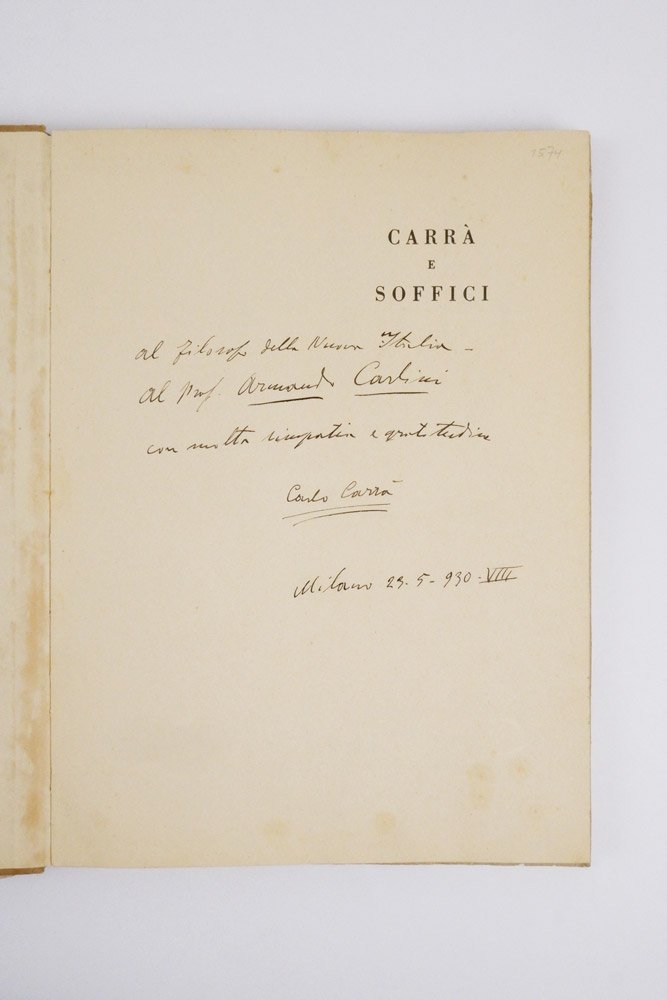 1574
CARRÀ
E
SOFFICI
al filosofo della Nuova Italia –
al Prof. Armando Carlini
con molta simpatia e gratitudine
Carlo Carrà
Milano 23-5-930-VIII